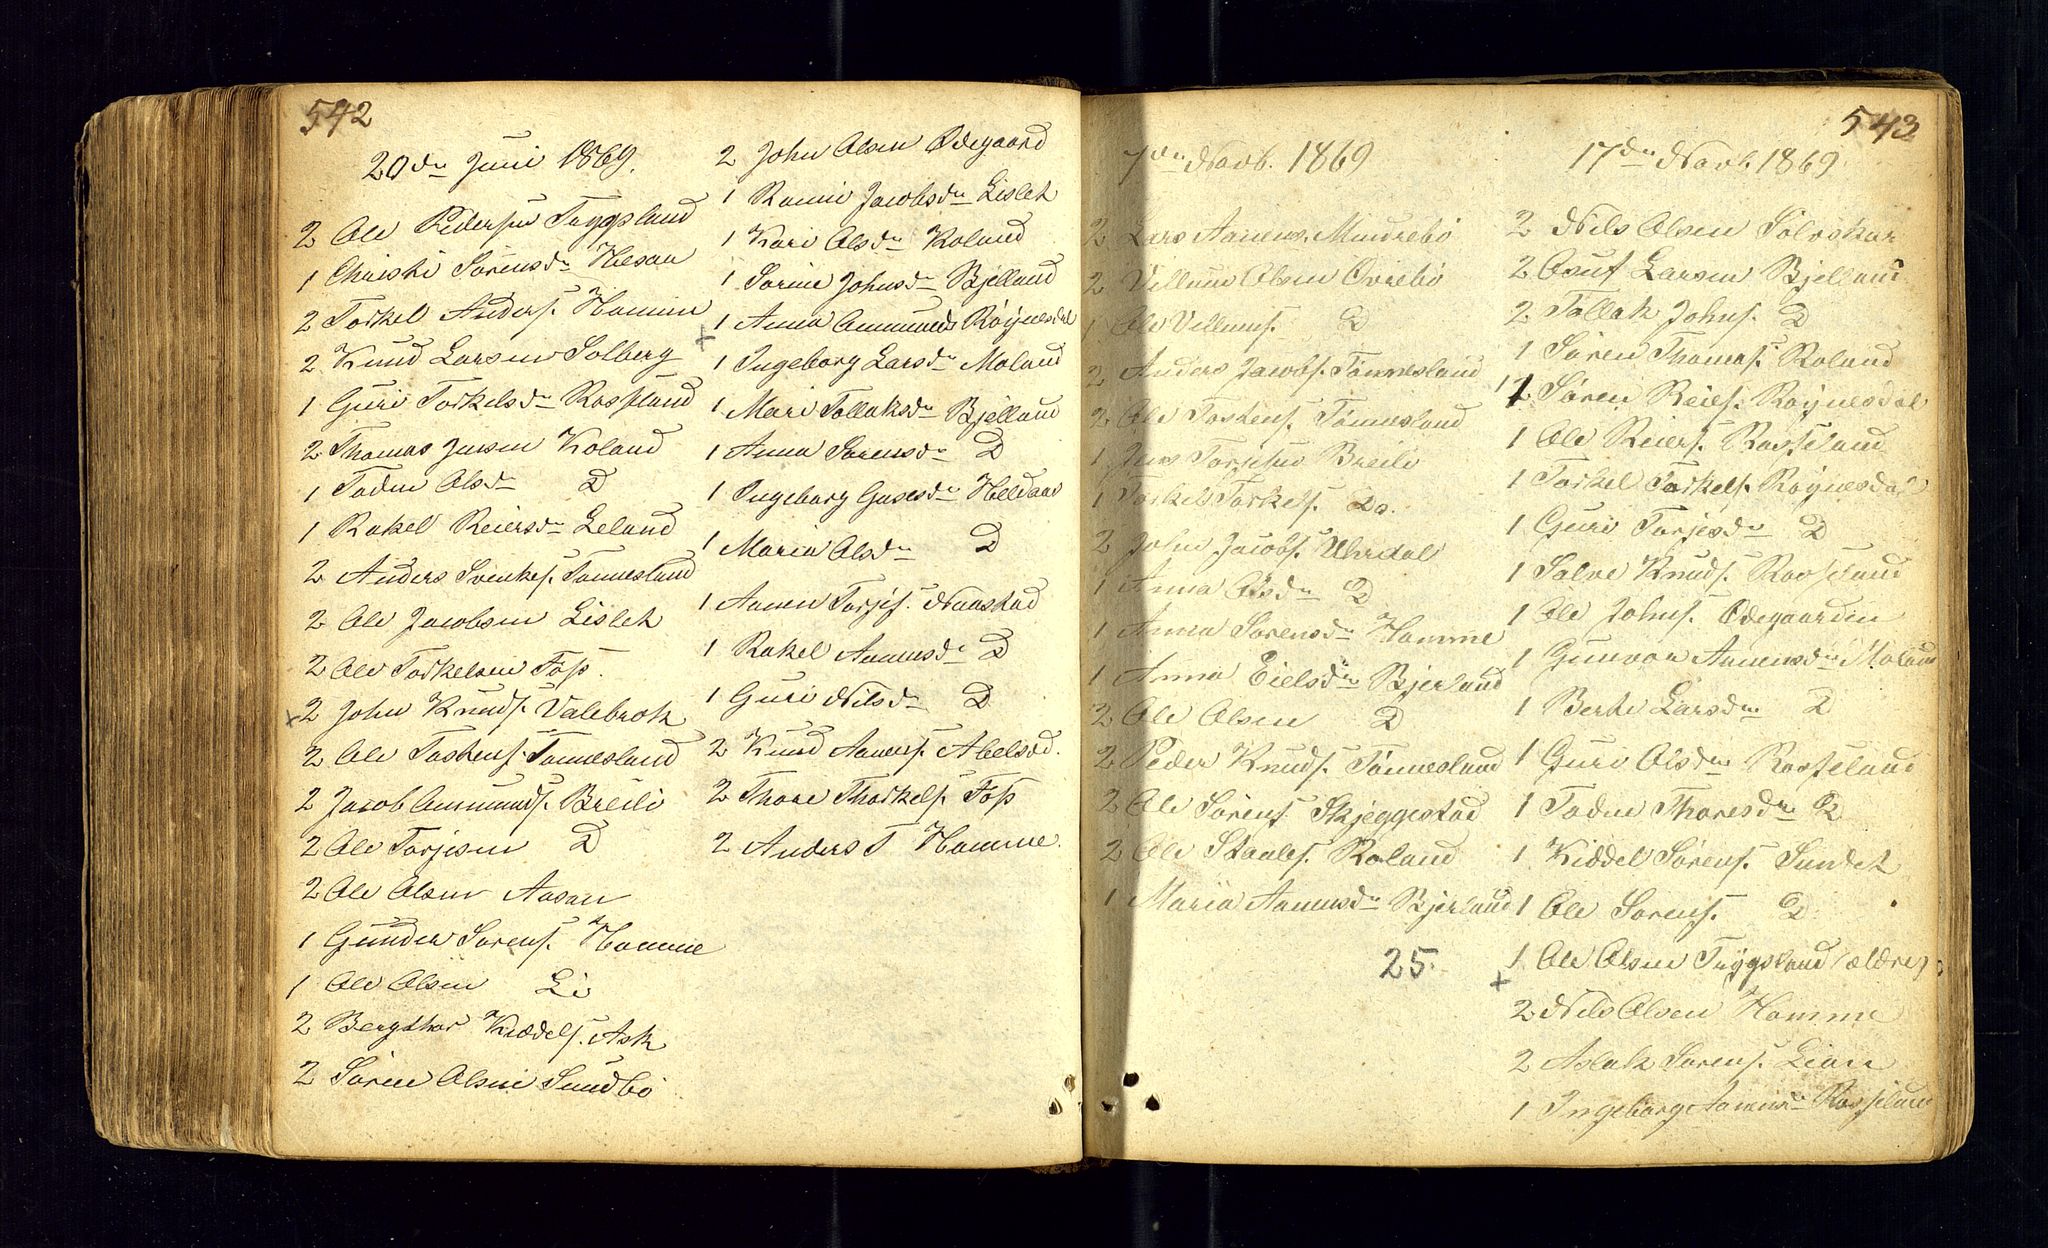 542
20de Juni 1869.
2 Ole Pedersen Tryggsland
1 Christi Sørensdr Hesaa
2 Torkel Anders. Homme
2 Knud Larsen Solberg
1 Guri Torkelsdr Rossland
2 Thomas Jensen Roland
1 Todne Olsdr D
1 Rakel Reiersdr Leland
2 Anders Svenkes. Tønnesland
2 Ole Jacobsen Lislet
2 Ole Torkelsen Foss.
x 2 John Knuds. Valebrok
2 Ole Torkens. Tønnesland
2 Jacob Ommunds. Breili
2 Ole Torjesen D
2 Ole Olsen Aasan
1 Gunder Sørens. Homme
1 Ole Olsen Li
2 Bergthor Kiddels. Ask
2 Søren Olsen Sundbø
2 John Olsen Ødegaard
1 Ronnie Jacobsdr Lislet
1 Kari Olsdr Roland
1 Sorine Johnsdr Bjelland
1 Anna Ommunds Røynesdal
+ 1 Ingeborg Larsdr Moland
1 Mari Tollaksdr Bjelland
1 Anna Sørensdr D
1 Ingeborg Gusesdr Heldaas
1 Maria Olsdr D
1 Aanen Torjes. Naastad
1 Rakel Aanensdr D
1 Guri Nilsdr D
2 Knud Aanens. Abelsød.
2 Thore Thorkels. Foss
2 Anders T Homme.
543
7de Novb. 1869
2 Lars Aanens. Mindrebø
2 Villum Olsen Øvrebø
1 Ole Villums. D
2 Anders Jacobs. Tønnesland
2 Ole Torkens. Tønnesland
1 Jens Torjesen Breili
1 Torkel Torkels. Do.
2 John Jacobs. Uhrdal
1 Anna Olsdr D
1 Anna Sørensdr Homme
1 Anna Eielsdr Bjerland
2 Ole Olsen D
2 Peder Knuds. Tønnesland
2 Ole Sørens. Skjeggestad
2 Ole Staales. Roland
1 Maria Aanensdr Bjerland
25.
17de Novb. 1869
2 Nils Olsen Sølvskar
2 Osuf Larsen Bjelland
2 Tollak Johns. D
1 Søren Thomas. Roland
1 Søren Reiers. Røynesdal
1 Ole Reiers. Rosseland
1 Torkel Torkels. Røynesdal
1 Guri Torjesdr D
1 Salve Knuds. Rosseland
1 Ole Johns. Ødegaarden
1 Gunvor Aanensdr Moland
1 Berte Larsdr D
1 Guri Olsdr Rosseland
1 Todne Thoresdr D
1 Kiddel Sørens. Sundet
1 Ole Sørens. D
+ 1 Ole Olsen Tryggsland (ældre)
2 Nils Olsen Homme
2 Aslak Sørens. Lian
1 Ingeborg Aanensdr Rosseland